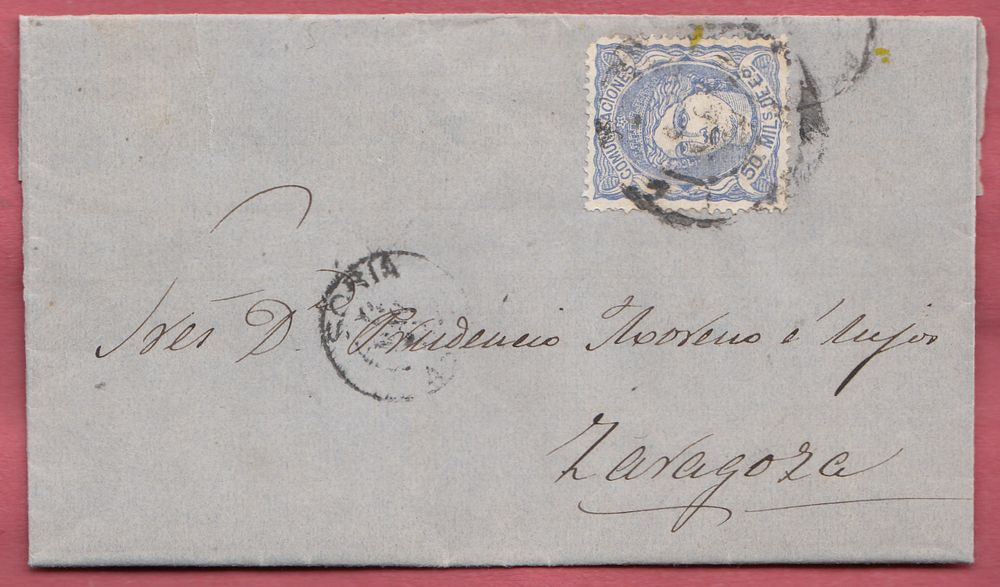 COMUNICACIONES
50. MILS DE Eº
SORIA
Sres Dn Prudencio Moreno é hijos
Zaragoza